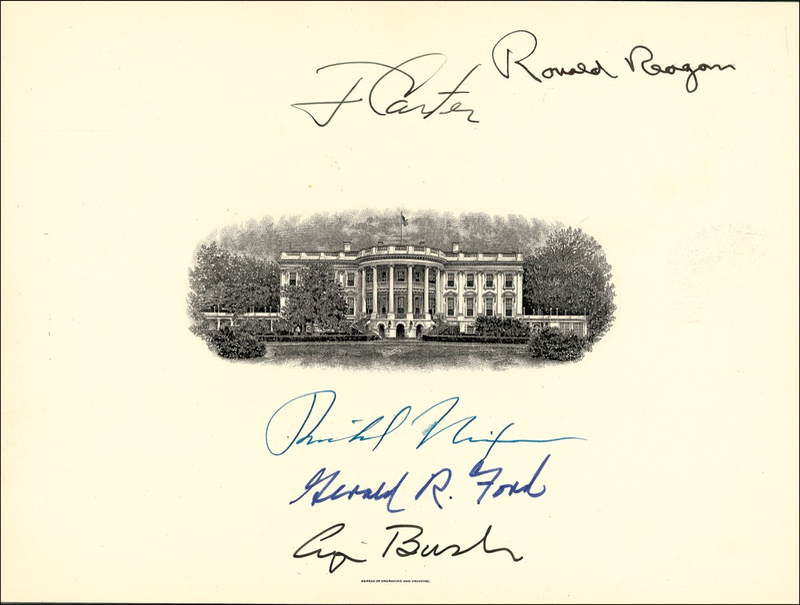 Ronald Reagan
J Carter
Richard Nixon
Gerald R. Ford
G Bush
BUREAU OF ENGRAVING AND PRINTING.